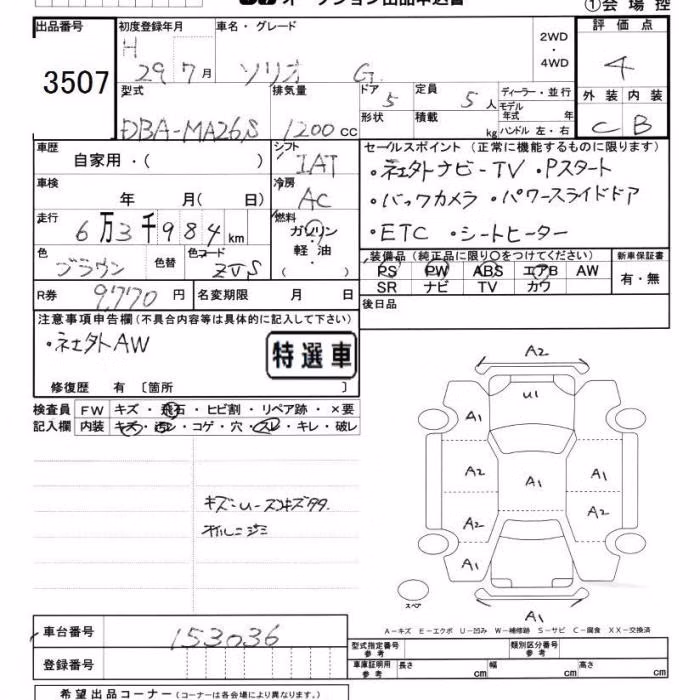 ①会場控
出品番号
3507
初度登録年月
H
29 7月
車名・グレード
ソリオ G
2WD
・
4WD
評価点
4
外装 内装
C B
型式
DBA-MA26S
排気量
1200 cc
ドア
5
定員
5人
形状
積載
kg
ディーラー・並行
モデル
年式 年
ハンドル 左・右
車歴
自家用・( )
シフト
IAT
車検
年 月( 日)
冷房
AC
走行
6万3千984km
燃料
ガソリン
・
軽油
色
ブラウン
色替
色コード
ZVS
R券
9,770円
名変期限 月 日
セールスポイント(正常に機能するものに限ります)
・社外ナビ-TV ・Pスタート
・バックカメラ ・パワースライドドア
・ETC ・シートヒーター
装備品(純正品に限り〇をつけてください)
PS PW ABS エアB AW
SR ナビ TV カワ
新車保証書
有・無
後日品
注意事項申告欄(不具合内容等は具体的に記入して下さい)
・社外AW
特選車
修復歴 有 [箇所 ]
検査員
記入欄
FW キズ・飛石・ヒビ割・リペア跡・×要
内装 キズ・汚レ・コゲ・穴・スレ・キレ・破レ
キズ-U-スリキズタタ
A2
U1
A1
A2
A1
A1
A2
A2
A1
A1
スペア
A-キズ E-エクボ U-凹み W-補修跡 S-サビ C-腐食 XX-交換済
車台番号
153036
登録番号
型式指定番号
参考
類別区分番号
参考
車庫証明用
参考
長さ cm
幅 cm
高さ cm
希望出品コーナー(コーナーは各会場により異なります。)